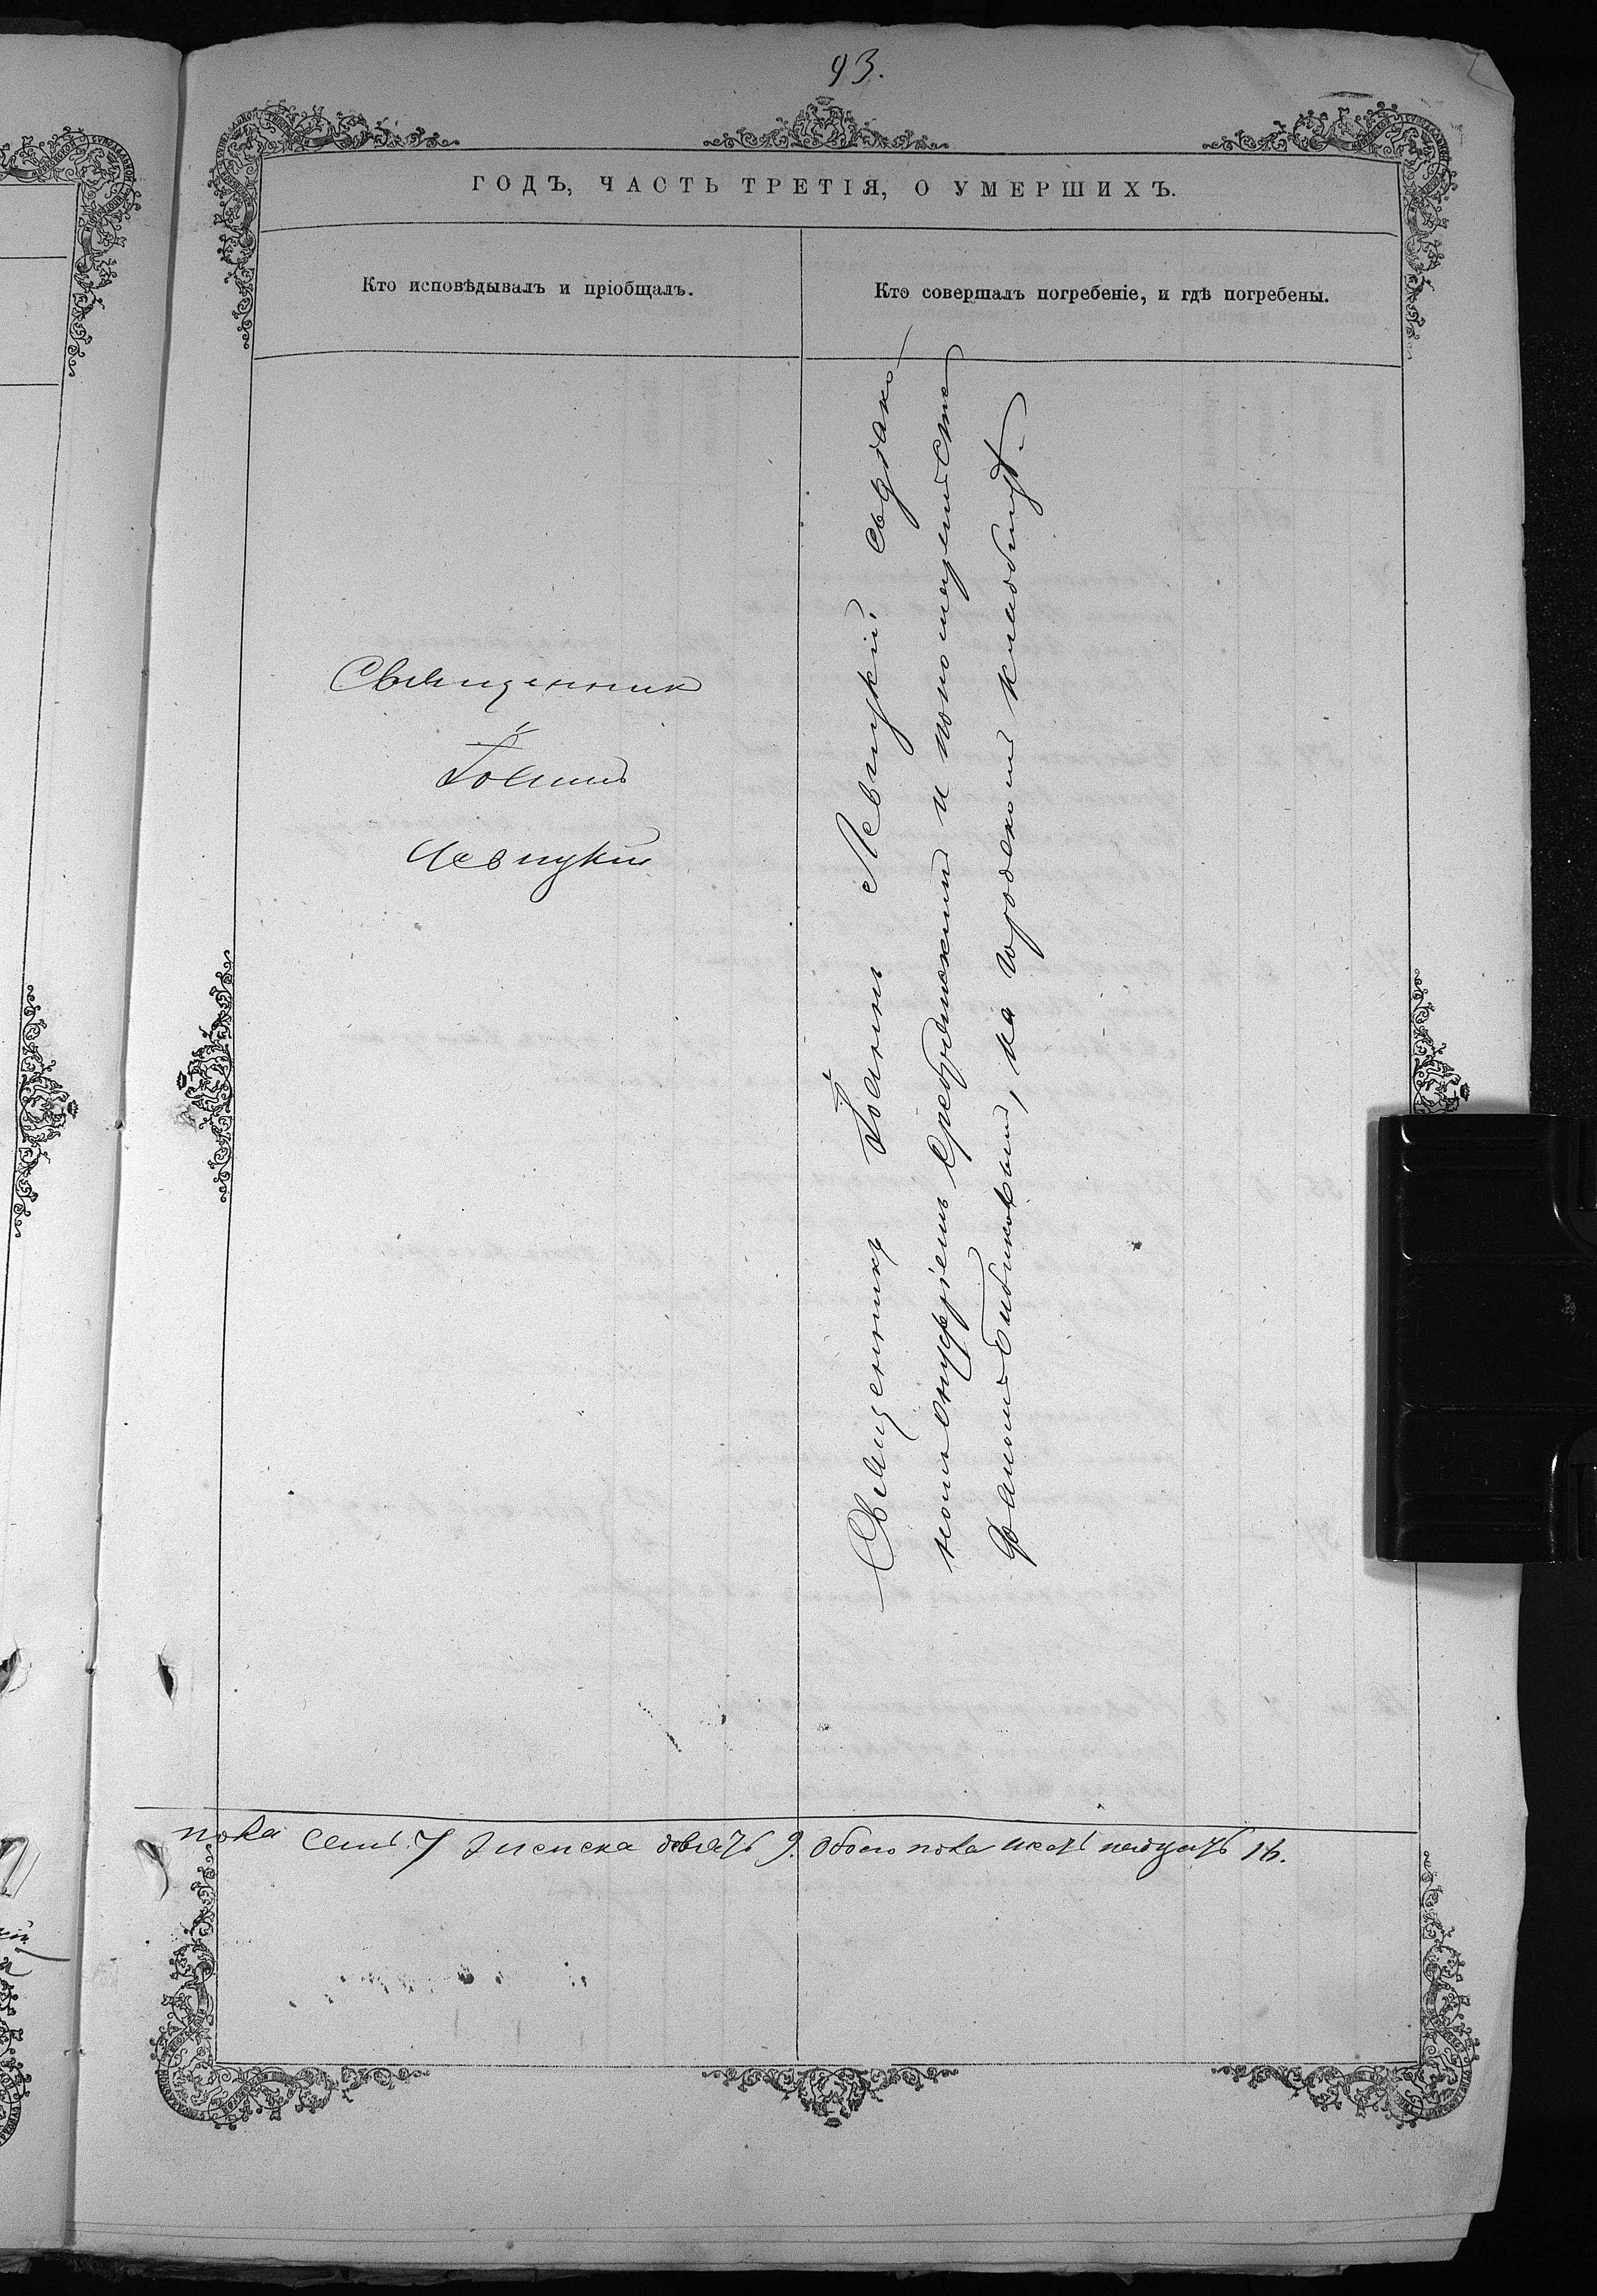 93.
ГОДЪ, ЧАСТЬ ТРЕТІЯ, О УМЕРШИХЪ.
Кто исповѣдывалъ и пріобщалъ.
Кто совершалъ погребеніе, и гдѣ погребены.
Священникъ
Іоаннъ
Левицкій
Священникъ Іоаннъ Левицкій съ діако-
номъ Онуфріемъ Сребрянскимъ и пономаремъ Сте
фаномъ Бибиковымъ, на городскомъ кладбищѣ.
пола семь 7 женска девять 9. Обоего пола шестьнадцать 16.